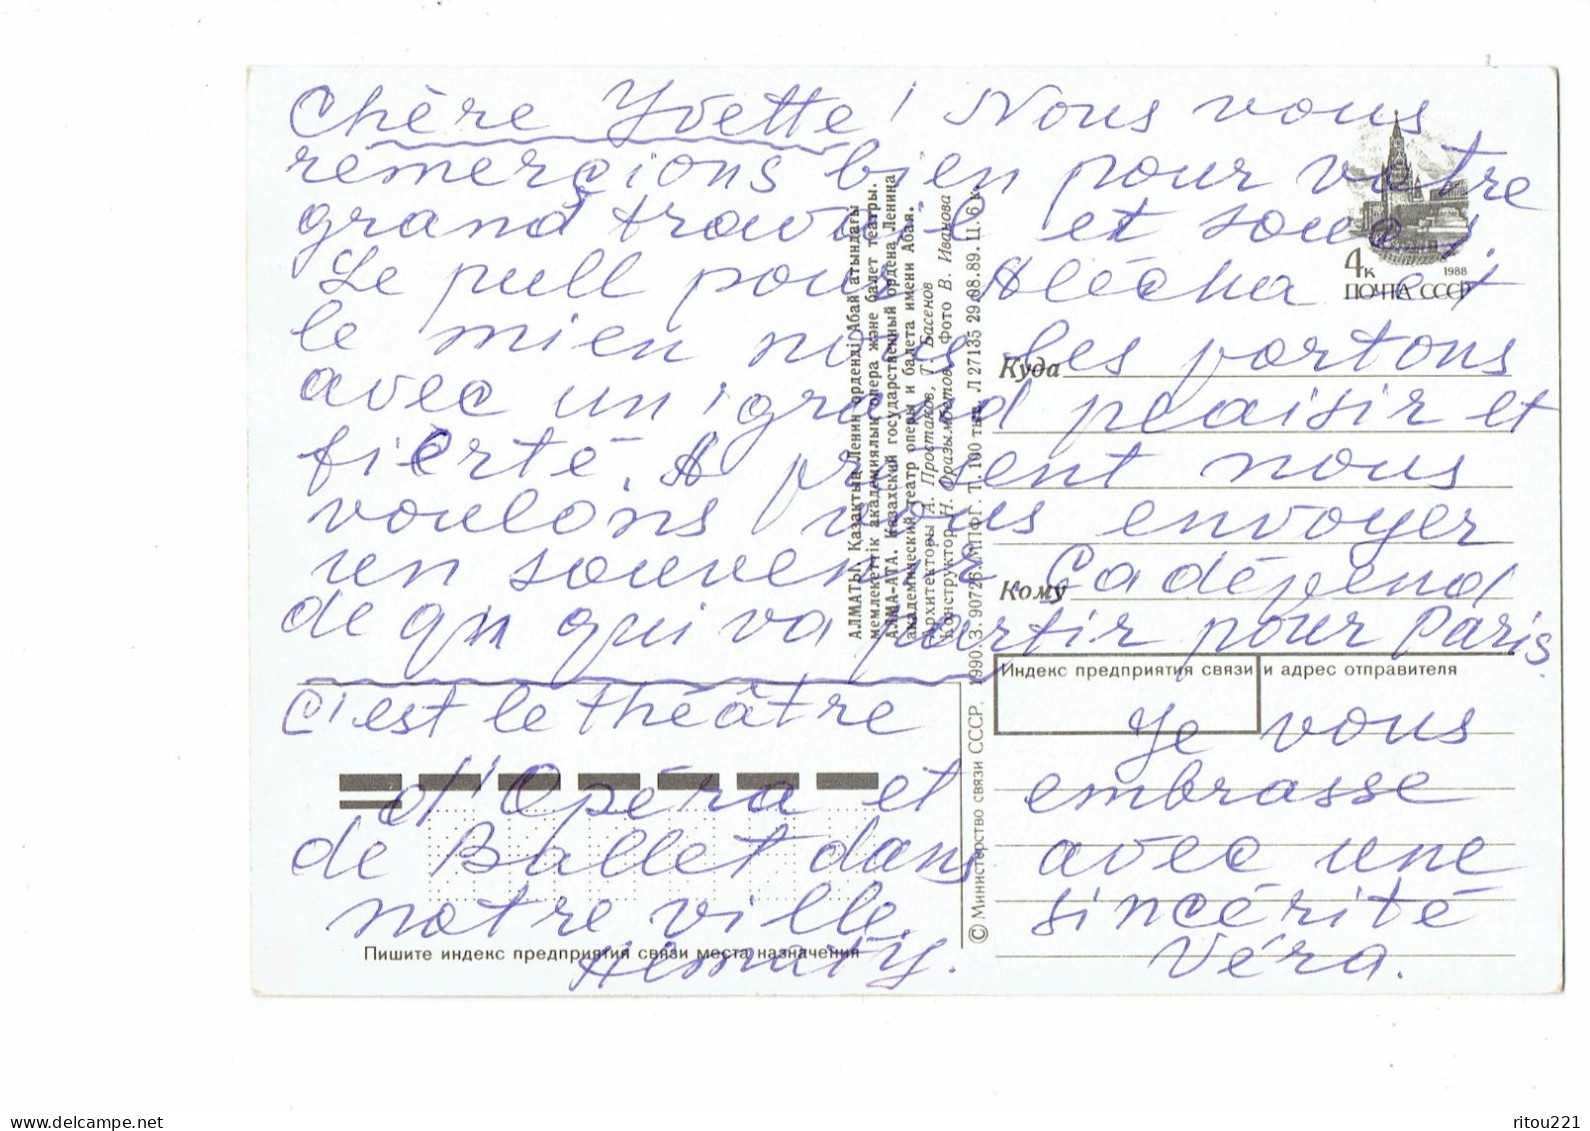 Chère Yvette! Nous vous
remercions bien pour votre
grand travail et souci.
Le pull pour Alécha et
le mien nous les portons
avec un grand plaisir et
fierté. A présent nous
voulons vous envoyer
un souvenir. Ca dépend
de qui va partir pour Paris.
C'est le théâtre
d'Opéra et
de Ballet dans
notre ville
Almaty.
Je vous
embrasse
avec une
sincérité
Véra.
4к 1988
ПОЧТА СССР
Куда
Кому
Индекс предприятия связи и адрес отправителя
Пишите индекс предприятия связи места назначения
АЛМАТЫ. Қазақтың Ленин орденді Абай атындағы
мемлекеттік академиялық опера және балет театры.
АЛМА-АТА. Казахский государственный ордена Ленина
академический театр оперы и балета имени Абая.
Архитекторы А. Простаков, Т. Басенов
Конструктор Н. Оразымбетов Фото В. Иванова
© Министерство связи СССР. 1990. З. 90726. МПФГ. Т. 100 тыс. Л 27135 29.08.89. Ц. 6 к.
delcampe.net
ritou221